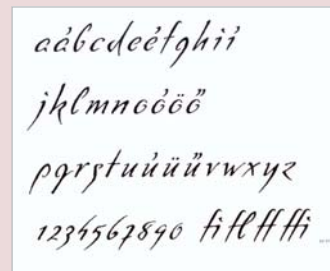 aábcdeéfghií
jklmnoóöő
pqrstuúüűvwxyz
1234567890 fi fl ff ffi